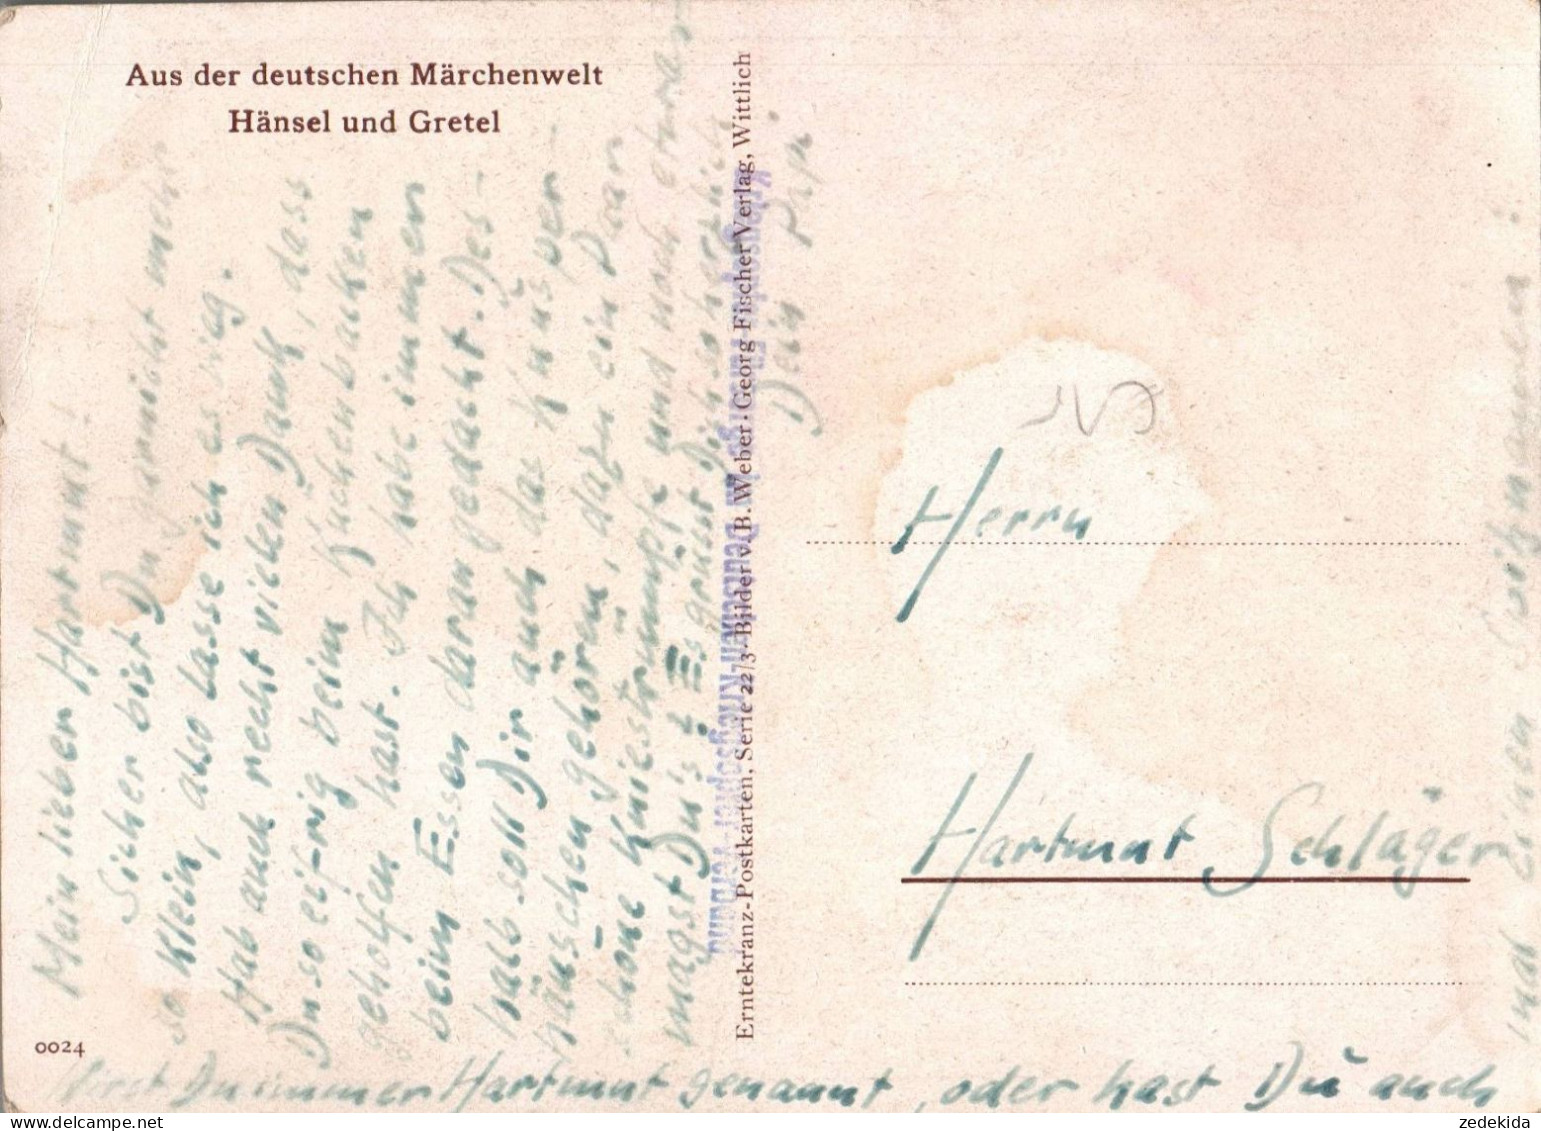 Aus der deutschen Märchenwelt
Hänsel und Gretel
Mein lieber Hartmut!
Sicher bist Du garnicht mehr
so klein, also lasse ich es weg.
Hab auch recht vielen Dank, dass
Du so eifrig beim Kuchenbacken
geholfen hast. Ich habe immer
beim Essen daran gedacht. Des-
halb soll Dir auch das Knusper-
häuschen gehören, dazu ein Paar
schöne Kniestrümpfe und noch etwas
magst Du's? Es grüsst Dich so herzlich
Dein Papi
Erntekranz-Postkarten, Serie 22/3 · Bilder v. B. Weber · Georg Fischer Verlag, Wittlich
Kriegsopfer-Fürsorge im Deutschen Kriegsopfer-Verband
Herrn
Hartmut Schläger
0024
Wirst Du immer Hartmut genannt, oder hast Du auch
mal einen Spitznamen?
zedekida